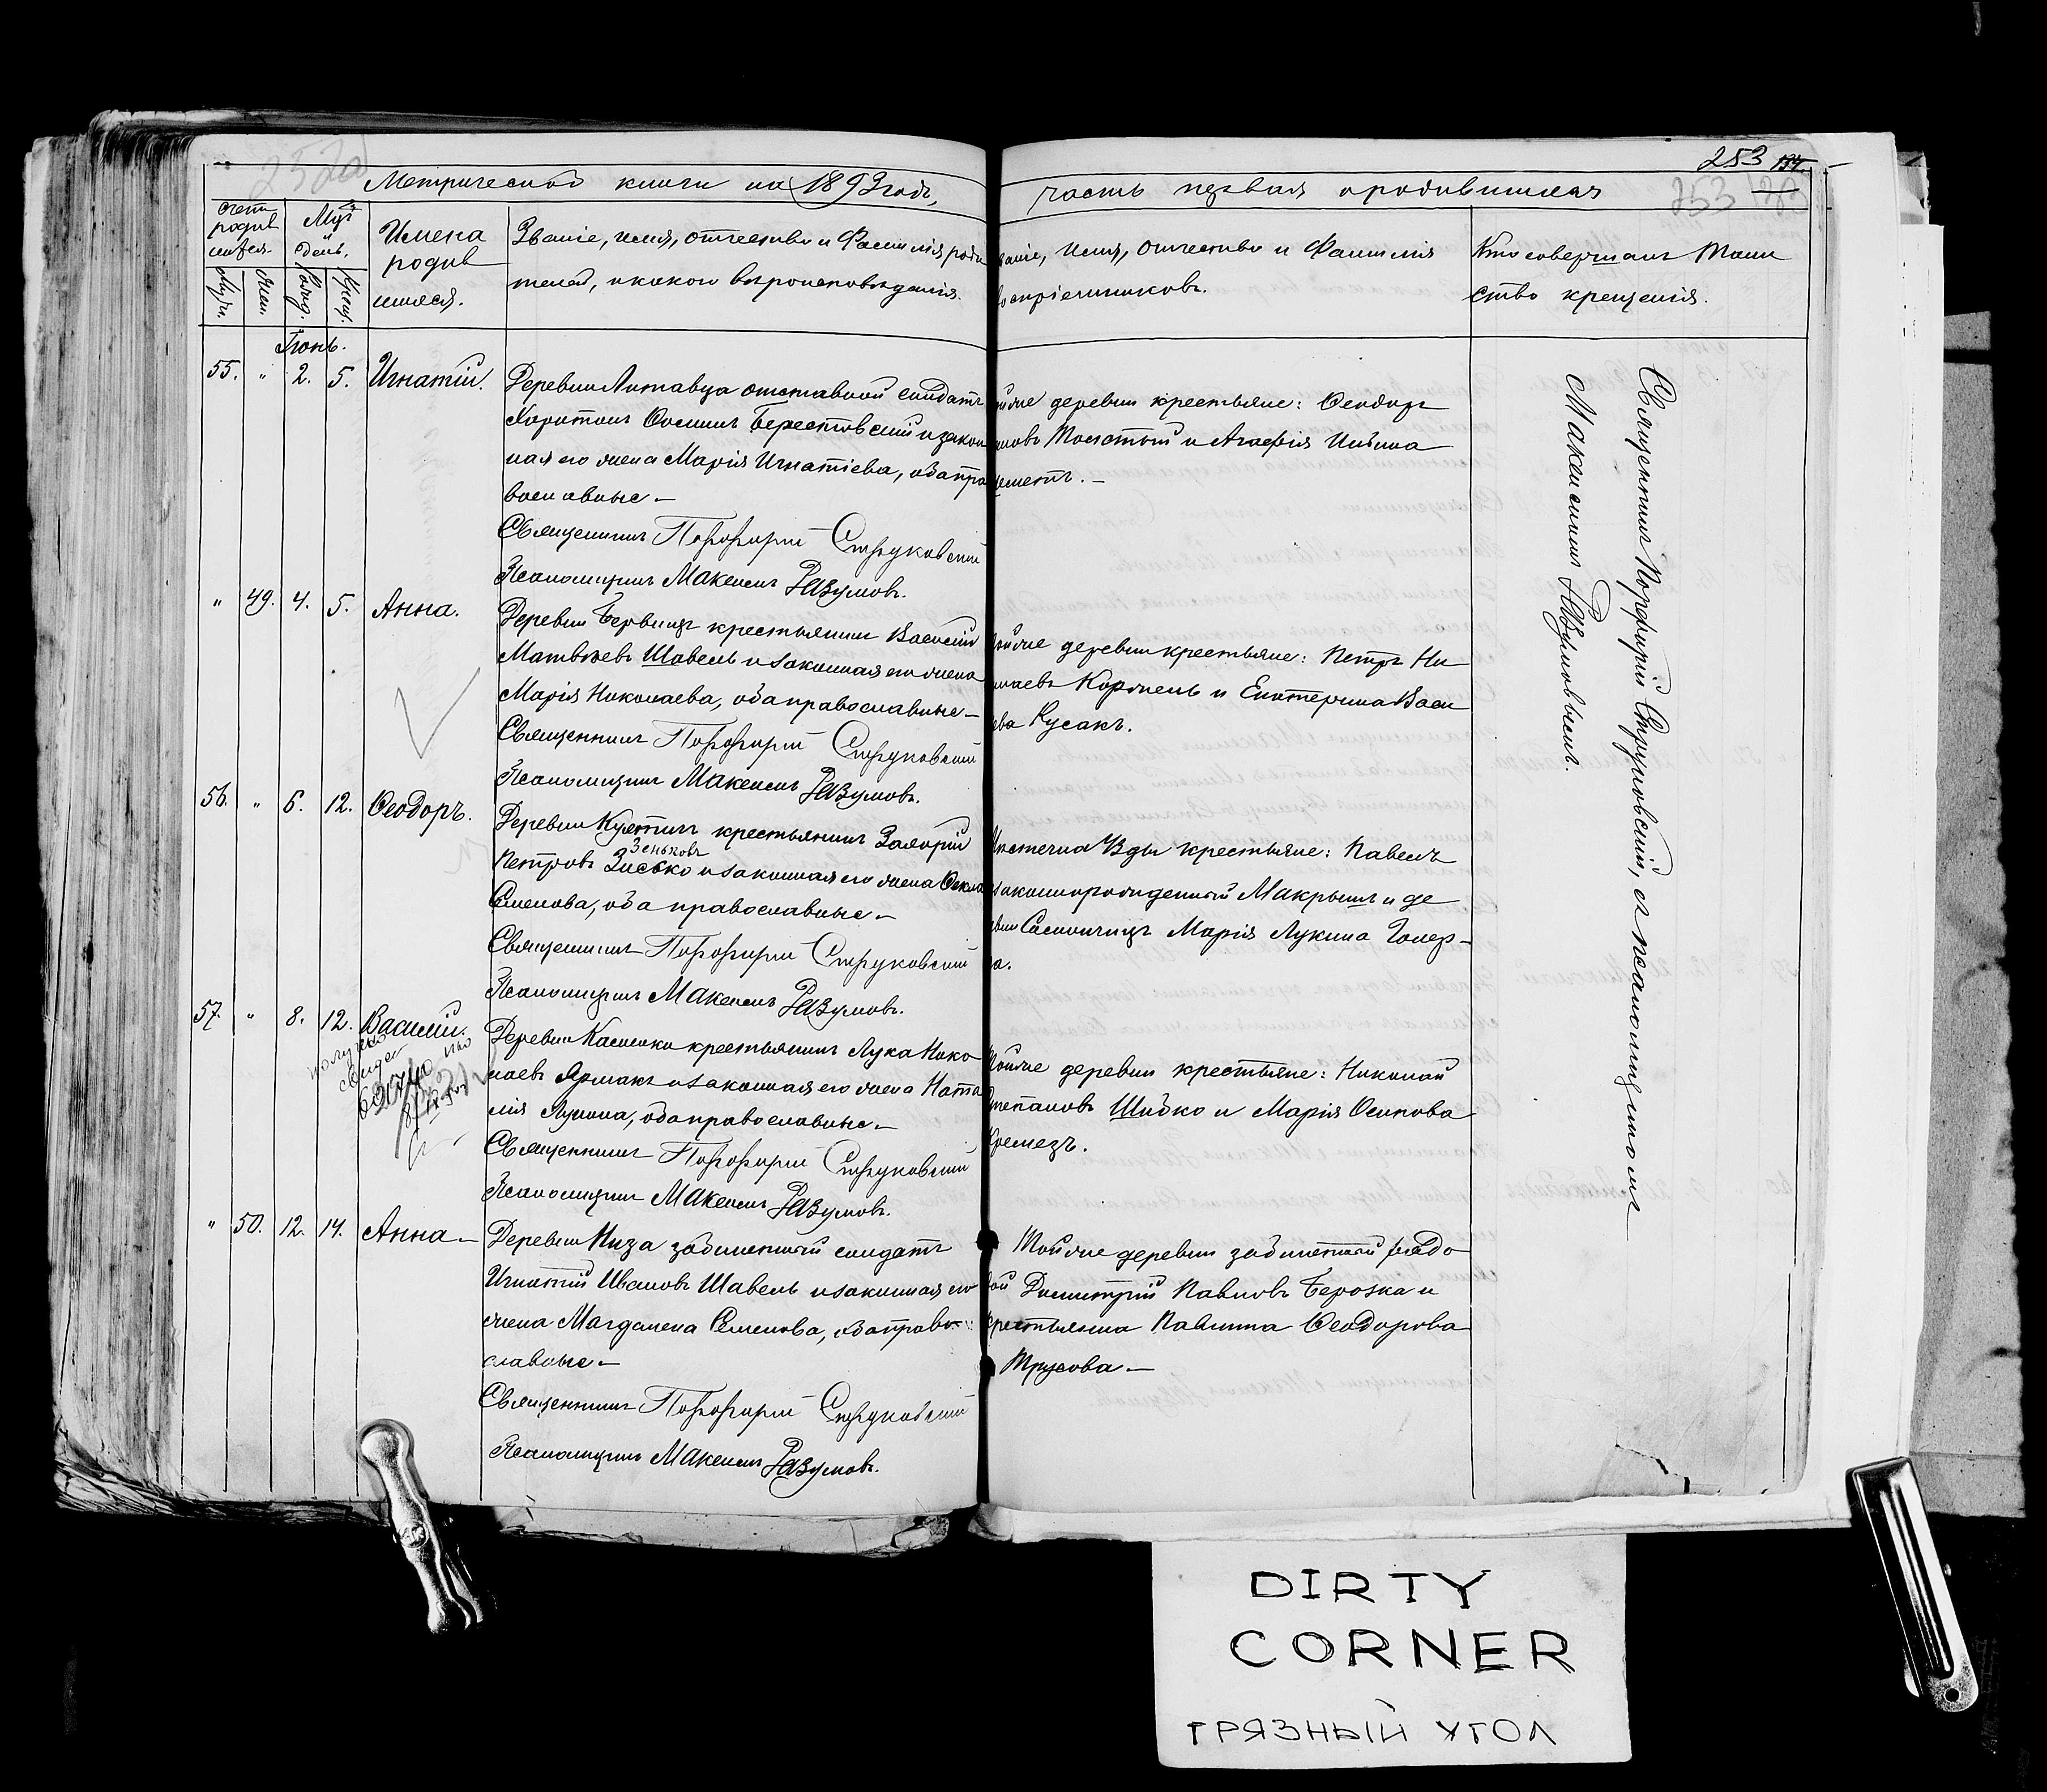 253 134.
253
Метрической книги на 1893 годъ,
часть первая о родившихся
Счетъ родив шихся.
Мѣс. и день.
Имена родив шихся.
Званіе, имя, отчество и фамилія роди
телей, и какого вѣроисповѣданія.
Званіе, имя, отчество и фамилія
воспріемниковъ.
Кто совершалъ Таин
ство крещенія.
Муж. Жен. Рожд. Крещ.
Іюнь.
55. " 2. 5. Игнатій.
Деревни Литавца отставной солдатъ
Харитонъ Осиповъ Берестовскій и закон
ная его жена Марія Игнатіева, оба пра
вославные —
Священникъ Порфирій Струковскій
Псаломщикъ Максимъ Разумовъ.
той же деревни крестьяне: Ѳеодоръ
Толстый и Агафія
" 49. 4. 5. Анна.
Деревни крестьянинъ Василій
Матвѣевъ Шавель и законная его жена
Марія Николаева, оба православные —
Священникъ Порфирій Струковскій
Псаломщикъ Максимъ Разумовъ.
той же деревни крестьяне: Петръ Ни
колаевъ и Екатерина Васи
ева Русакъ.
56. " 6. 12. Ѳеодоръ.
Деревни крестьянинъ Захарій
Петровъ Зеньковъ Зисько и законная его жена Ѳекла
Семенова, оба православные —
Священникъ Порфирій Струковскій
Псаломщикъ Максимъ Разумовъ.
Мѣстечка Узды крестьяне: Павелъ
законнорожденный и де
ревни Марія Лукина
57. " 8. 12. Василій.
Деревни крестьянинъ Лука Нико
лаевъ Ярмакъ и законная его жена Ната
лія оба православные —
Священникъ Порфирій Струковскій
Псаломщикъ Максимъ Разумовъ.
Той же деревни крестьяне: Николай
Степановъ Шибко и Марія Осипова
Кремезъ.
" 50. 12. 14. Анна —
Деревни Низа забилетный солдатъ
Игнатій Ивановъ Шавель и законная его
жена Магдалена Семенова, оба право-
славные —
Священникъ Порфирій Струковскій
Псаломщикъ Максимъ Разумовъ.
Той же деревни забилетный рядо
вой Димитрій Павловъ Березка и
крестьянка Павлина Ѳеодорова
Трусова —
Священникъ Порфирій Струковскій, съ псаломщикомъ
Максимомъ Разумовымъ.
DIRTY
CORNER
ГРЯЗНЫЙ УГОЛ